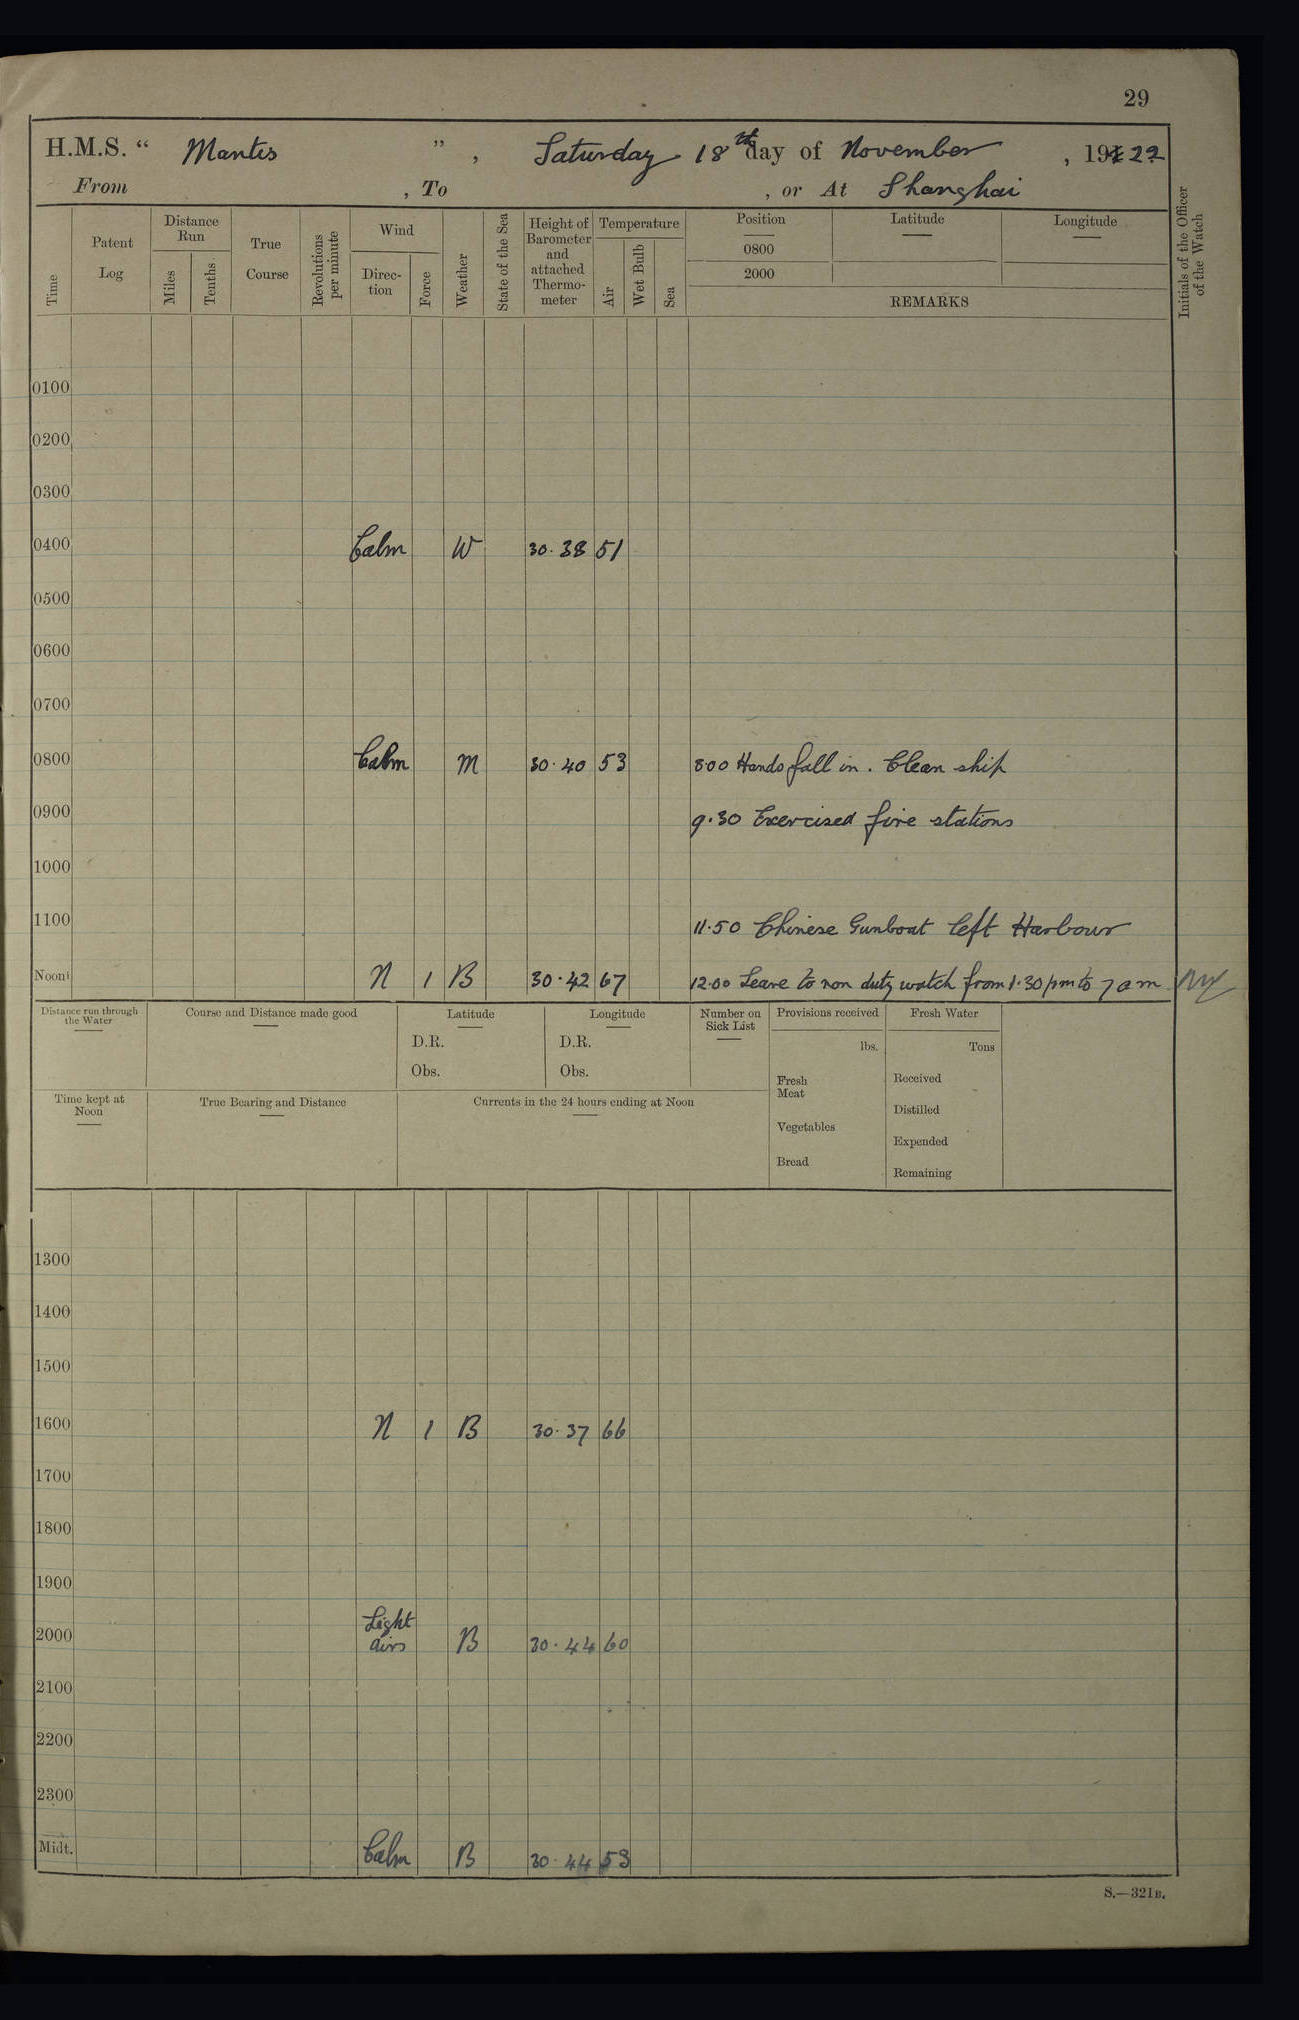 29
H.M.S. “ Mantis ” , Saturday 18th day of November , 1922
From , To , or At Shanghai
Time
Patent Log
Distance Run
Miles
Tenths
True Course
Revolutions per minute
Wind
Direc-tion
Force
Weather
State of the Sea
Height of Barometer and attached Thermo-meter
Temperature
Air
Wet Bulb
Sea
Position
Latitude
Longitude
0800
2000
REMARKS
Initials of the Officer of the Watch
0100
0200
0300
0400 Calm W 30.38 51
0500
0600
0700
0800 Calm M 30.40 53 8.00 Hands fall in. Clean ship
0900 9.30 Exercised fire stations
1000
1100 11.50 Chinese Gunboat left Harbour
Noon N 1 B 30.42 67 12.00 Leave to non duty watch from 1.30 pm to 7 am
Distance run through the Water
Course and Distance made good
Latitude
D.R.
Obs.
Longitude
D.R.
Obs.
Number on Sick List
Provisions received
lbs.
Fresh Meat
Vegetables
Bread
Fresh Water
Tons
Received
Distilled
Expended
Remaining
Time kept at Noon
True Bearing and Distance
Currents in the 24 hours ending at Noon
1300
1400
1500
1600 N 1 B 30.37 66
1700
1800
1900
2000 Light airs B 30.44 60
2100
2200
2300
Midt. Calm B 30.44
S.—321B.